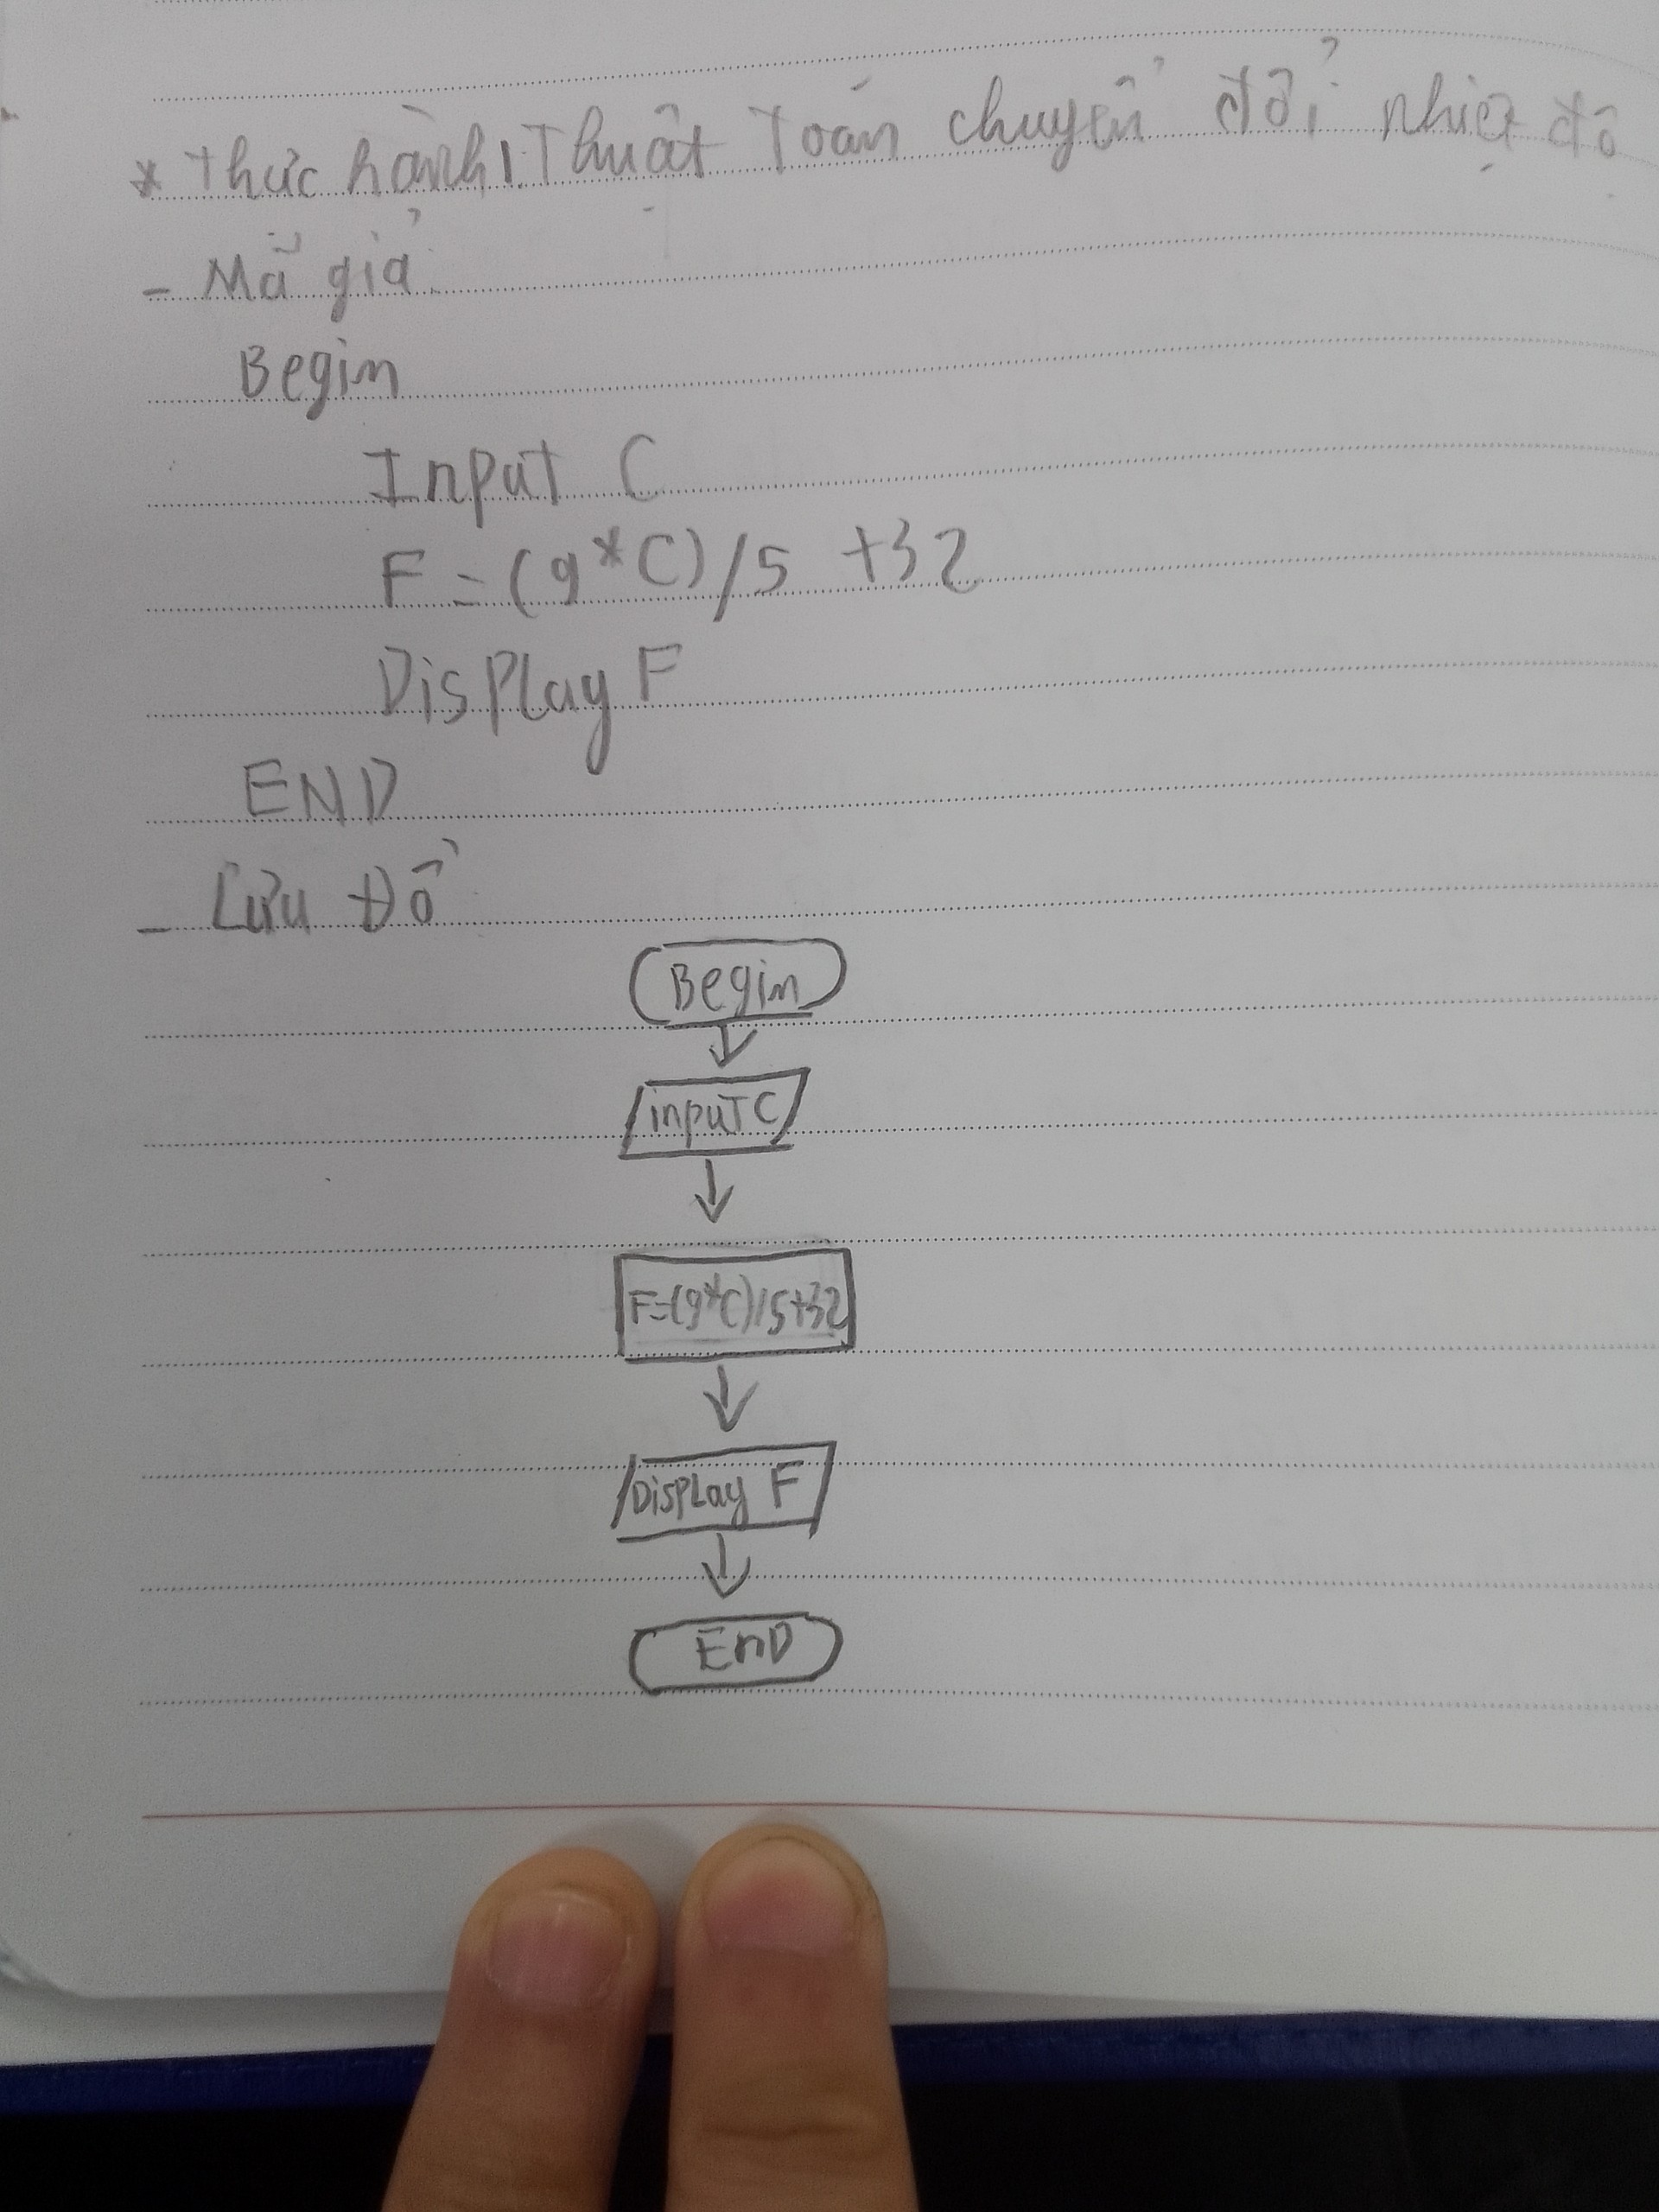 * Thực hành 1: Thuật Toán chuyển đổi nhiệt độ
- Mã giả:
Begin
Input C
F = (9*C)/5 +32
Display F
END
- Lưu Đồ
Begin
input C
F=(9*C)/5+32
Display F
EnD